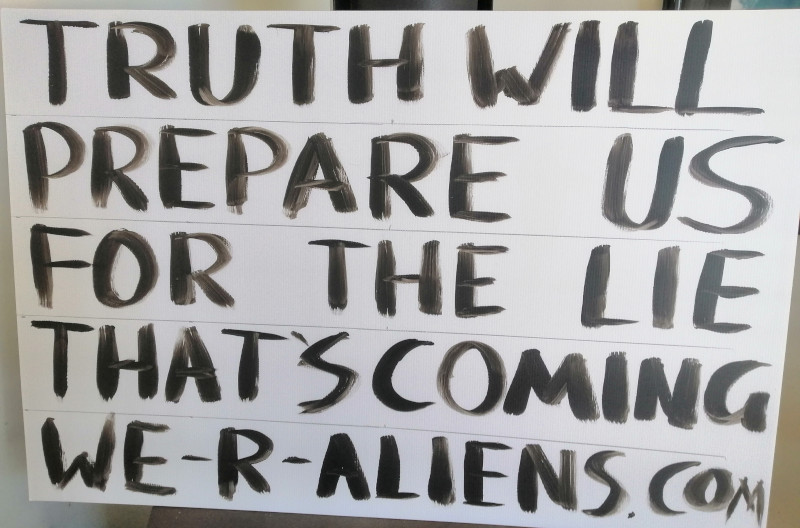 TRUTH WILL
PREPARE US
FOR THE LIE
THAT'S COMING
WE-R-ALIENS.COM